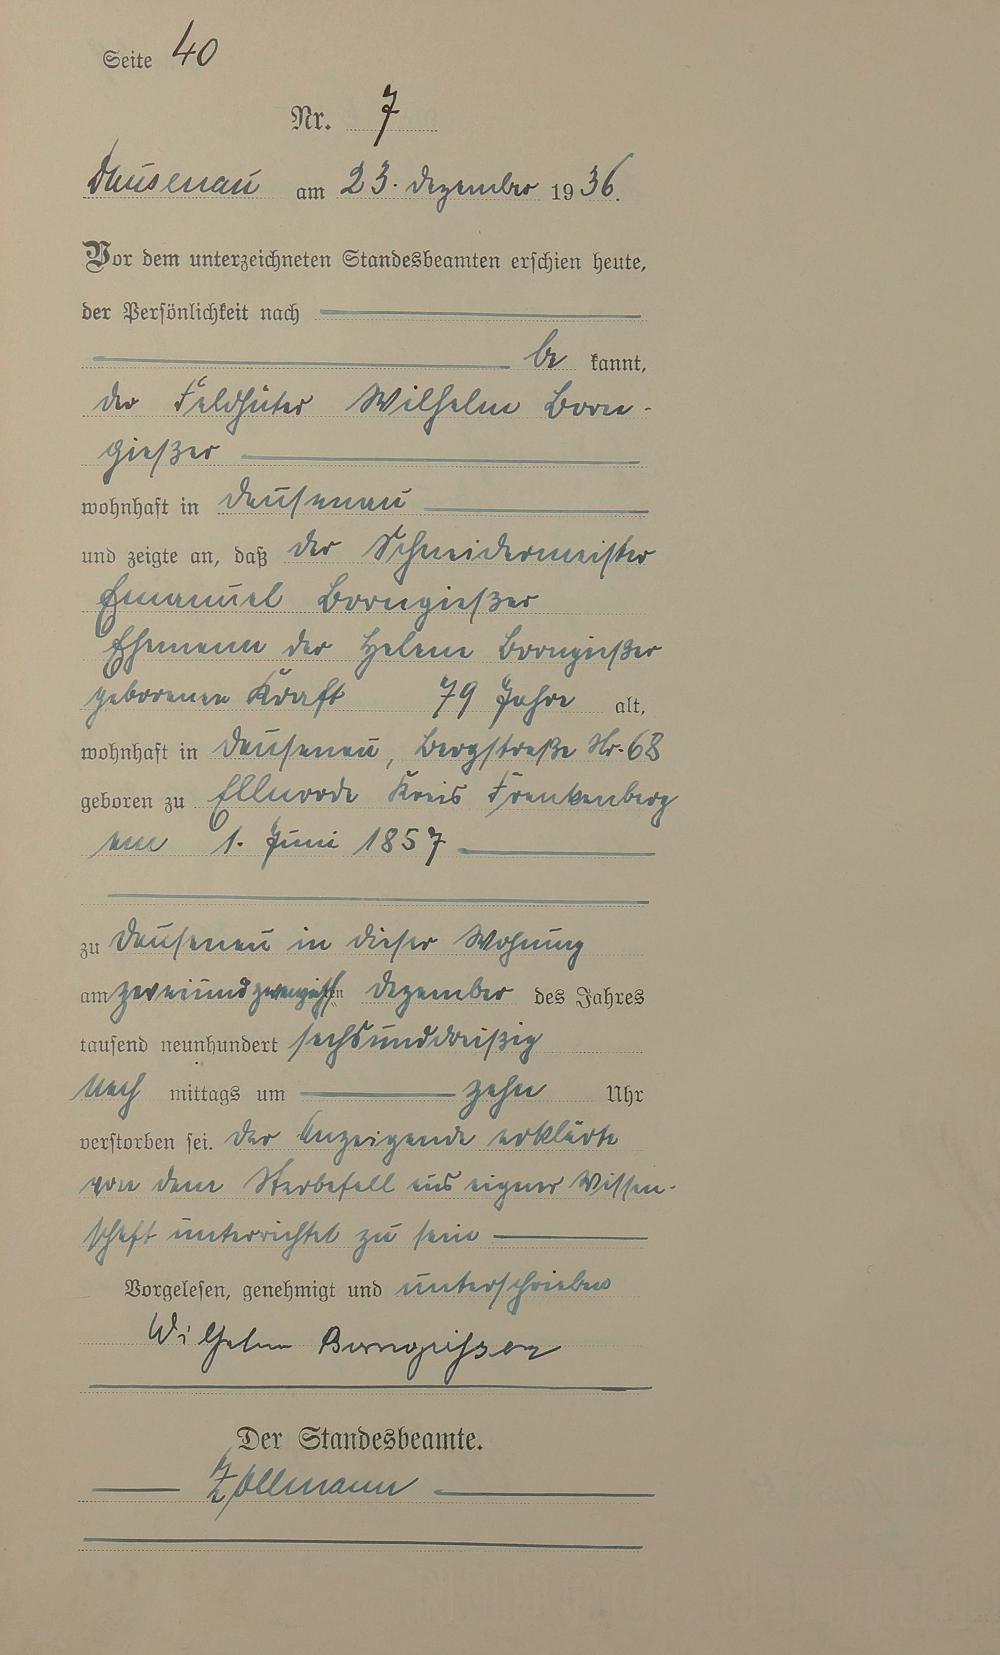 Seite 40
Nr. 7
Dausenau am 23. Dezember 1936.
Vor dem unterzeichneten Standesbeamten erschien heute,
der Persönlichkeit nach
be kannt,
der Feldhüter Wilhelm Born-
gießer
wohnhaft in Dausenau
und zeigte an, daß der Schneidermeister
Emanuel Borngießer
Ehemann der Helene Borngießer
geborenen Kraft 79 Jahre alt,
wohnhaft in Dausenau, Bergstraße Nr. 68
geboren zu Ellnrode Kreis Frankenberg
am 1. Juni 1857
zu Dausenau in dieser Wohnung
am zweiundzwanzigsten Dezember des Jahres
tausend neunhundert sechsunddreißig
Nach mittags um zehn Uhr
verstorben sei. Der Anzeigende erklärte
von dem Sterbefall aus eigner Wissen-
schaft unterrichtet zu sein
Vorgelesen, genehmigt und unterschrieben
Wilhelm Borngießer
Der Standesbeamte.
Zollmann